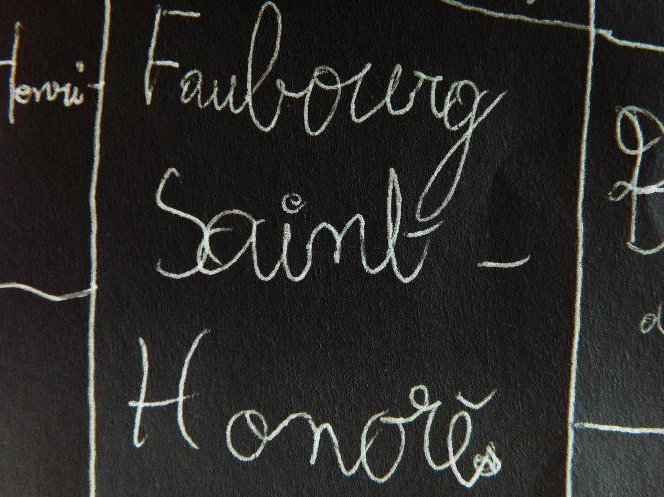 Henri
Faubourg
Saint -
Honoré